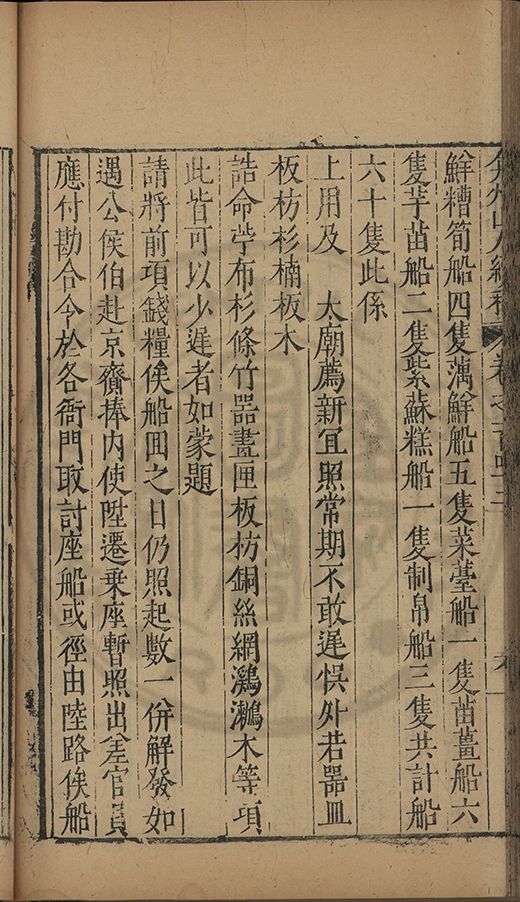 弇州山人續稿 卷之一百四
鮮糟筍船四隻蕅鮮船五隻菜薹船一隻苗薑船六
隻芋苗船二隻紫蘇糕船一隻制帛船三隻共計船
六十隻此係
上用及 太廟薦新宜照常期不敢遲悮外若器皿
板枋杉楠板木
誥命苧布杉條竹器畫匣板枋銅絲網鸂鶒木等項
此皆可以少遲者如蒙題
請將前項錢糧俟船囬之日仍照起數一併解發如
遇公侯伯赴京齎捧內使陞遷乘座暫照出差官員
應付勘合令於各衙門取討座船或徑由陸路俟船